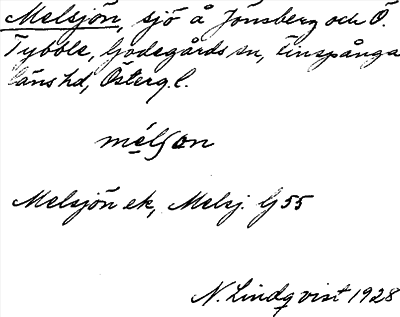 Melsjön, sjö å Jonsberg och Ö.
Tybble, Godegårds sn, Finspånga
läns hd, Österg. l.
mélʃon
Melsjön ek, Melsj. G 55
N. Lindqvist 1928